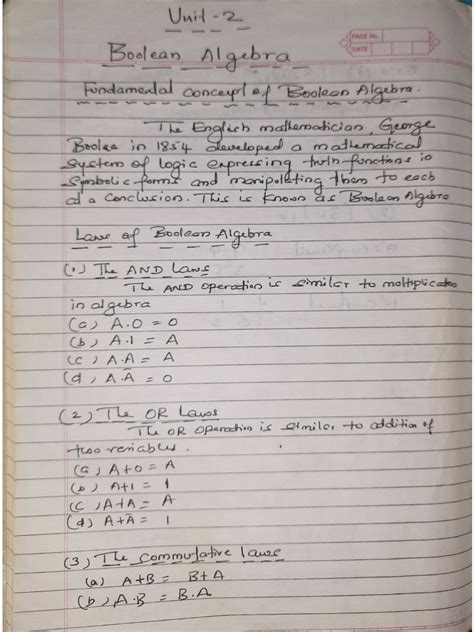 Unit-2
PAGE No.
DATE
Boolean Algebra
Fundamental concept of Boolean Algebra.
The English mathematician, George
Boolea in 1854 developed a mathematical
system of logic expressing truth functions in
symbolic forms and manipulating them to each
at a conclusion. This is known as Boolean Algebra
Laws of Boolean Algebra
(1) The AND Laws
The AND operation is similar to multiplication
in algebra
(a) A.0 = 0
(b) A.1 = A
(c) A.A = A
(d) A.Ā = 0
(2) The OR Laws
The OR operation is similar to addition of
two variables.
(a) A+0 = A
(b) A+1 = 1
(c) A+A = A
(d) A+Ā = 1
(3) The commutative laws
(a) A+B = B+A
(b) A.B = B.A